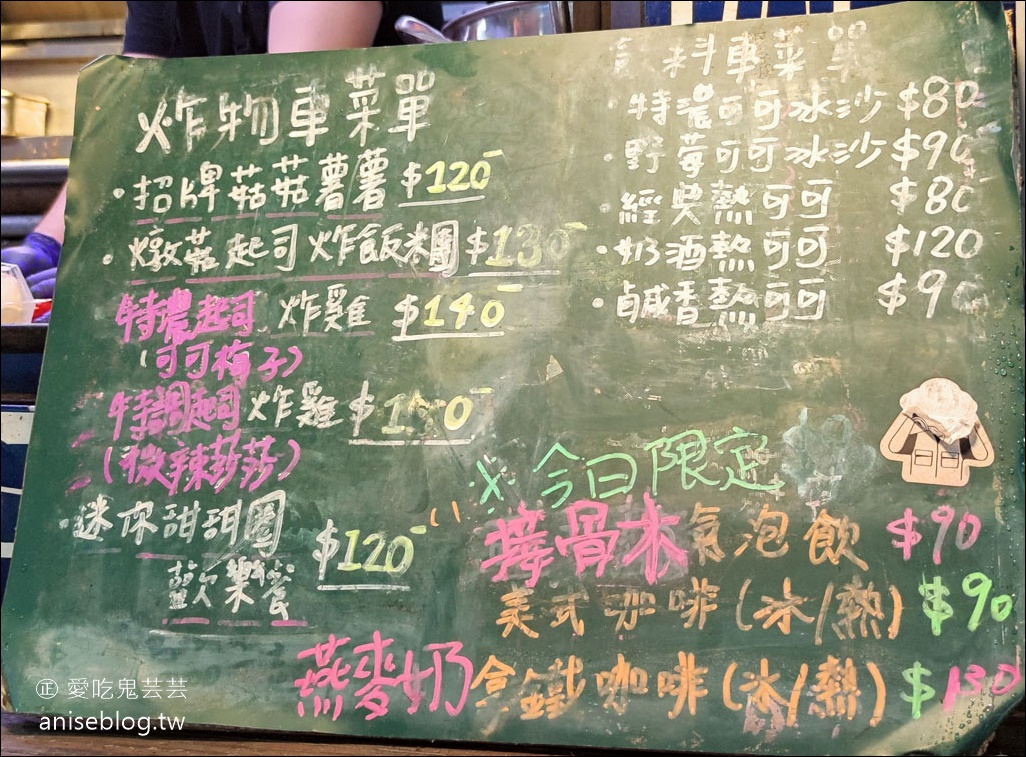 炸物車菜單
·招牌菇菇薯薯 $120-
·燉菇起司炸飯米團 $130-
特濃起司 炸雞 $140-
(可可梅子)
特調起司炸雞 $150-
(微辣莎莎)
·迷你甜甜圈 $120-
歡樂餐
飲料車菜單
·特濃可可冰沙 $80
·野莓可可冰沙 $90
經典熱可可 $80
·奶酒熱可可 $120
·鹹香熱可可 $90
※今日限定
接骨木氣泡飲 $90
美式咖啡(冰/熱) $90
燕麥奶拿鐵咖啡(冰/熱) $130
愛吃鬼芸芸
aniseblog.tw